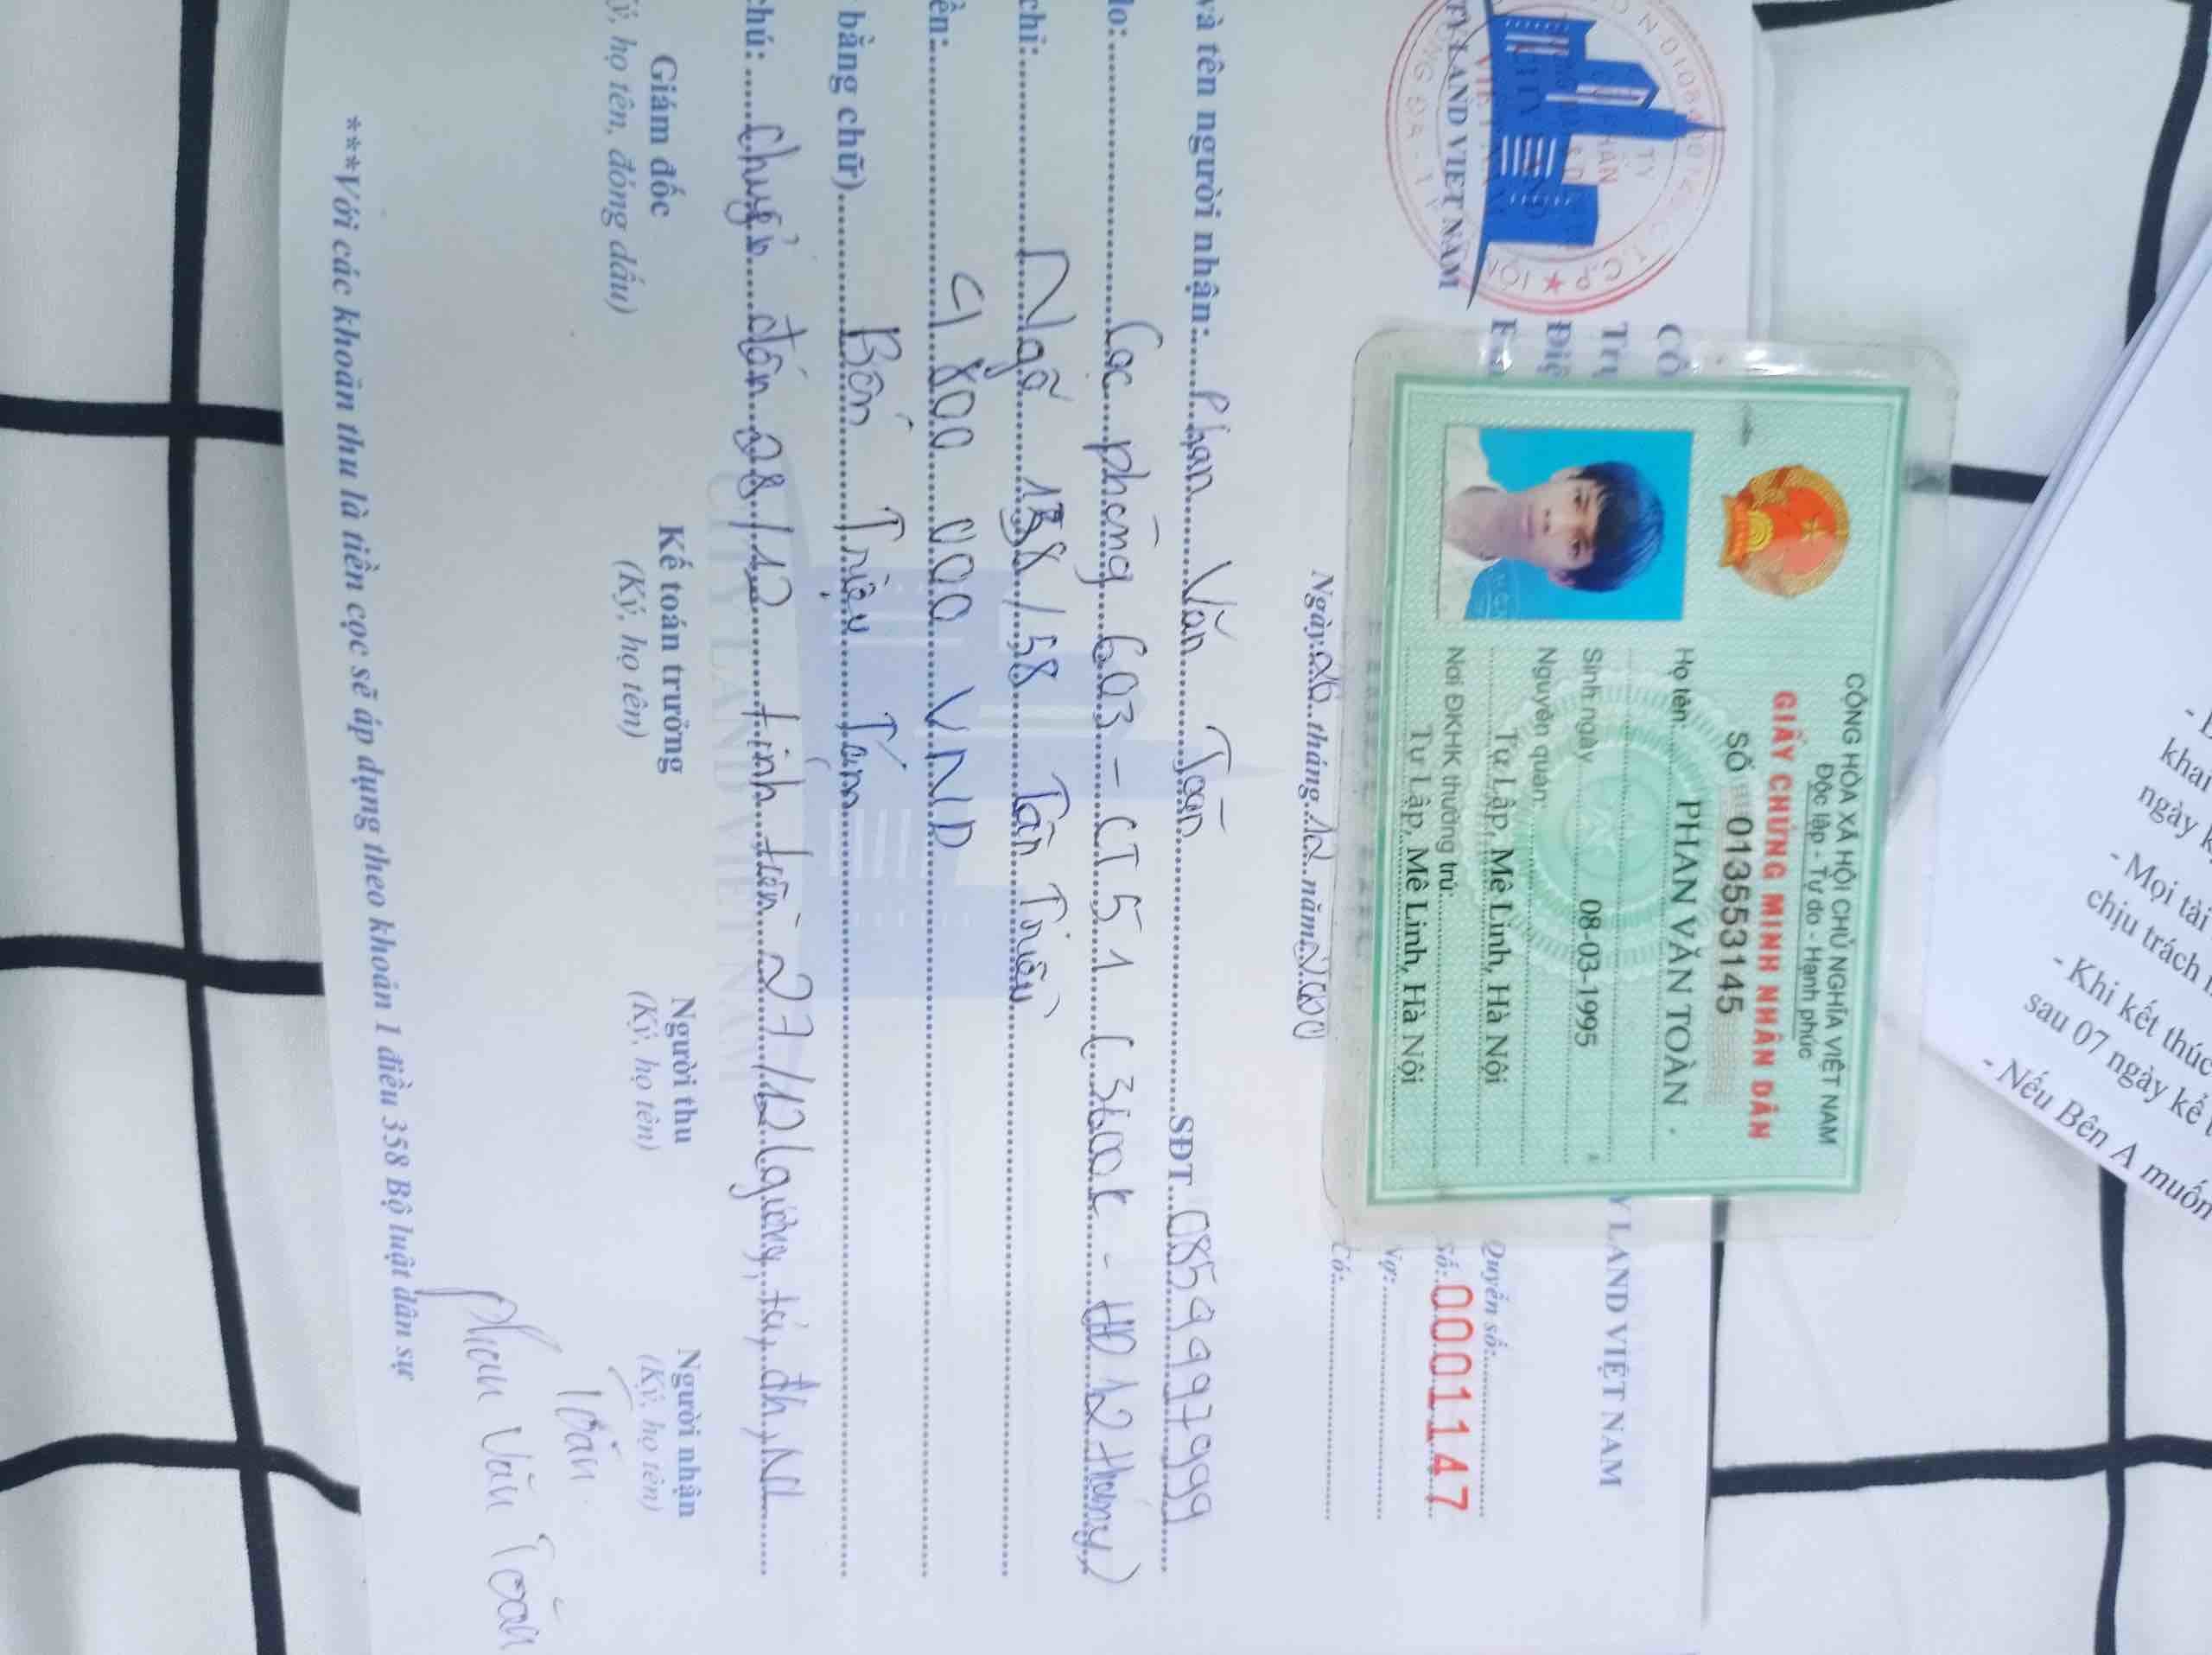 CỘNG HÒA XÃ HỘI CHỦ NGHĨA VIỆT NAM
Độc lập - Tự do - Hạnh phúc
GIẤY CHỨNG MINH NHÂN DÂN
SỐ 013553145
Họ tên: PHAN VĂN TOÀN
Sinh ngày 08-03-1995
Nguyên quán:
Tự Lập, Mê Linh, Hà Nội
Nơi ĐKHK thường trú:
Tự Lập, Mê Linh, Hà Nội
TY LAND VIỆT NAM
CÔ
Trụ
Điệ
Y LAND VIỆT NAM
Quyển số:
Số: 0001147
Nợ:
Có:
Ngày 26 tháng 12 năm
và tên người nhận: Phan Văn Toàn SĐT 0859997999
do: Cọc phòng 603 - CT51 (3600k - HĐ 12 tháng)
chỉ: Ngõ 58 Tân Triều
ền: 4 800 000 VND
bằng chữ) Bốn Triệu Tám
chú: chuyển đến 28/12 tính tiền 27/12 (giường, tủ, đh, NL
Giám đốc
ý, họ tên, đóng dấu)
Kế toán trưởng
(Ký, họ tên)
Người thu
(Ký, họ tên)
Người nhận
(Ký, họ tên)
Toàn
Phan Văn Toàn
***Với các khoản thu là tiền cọc sẽ áp dụng theo khoản 1 điều 358 Bộ luật dân sự
khai
ngày k
- Mọi tài
chịu trách
- Khi kết thúc
sau 07 ngày kể
- Nếu Bên A muốn